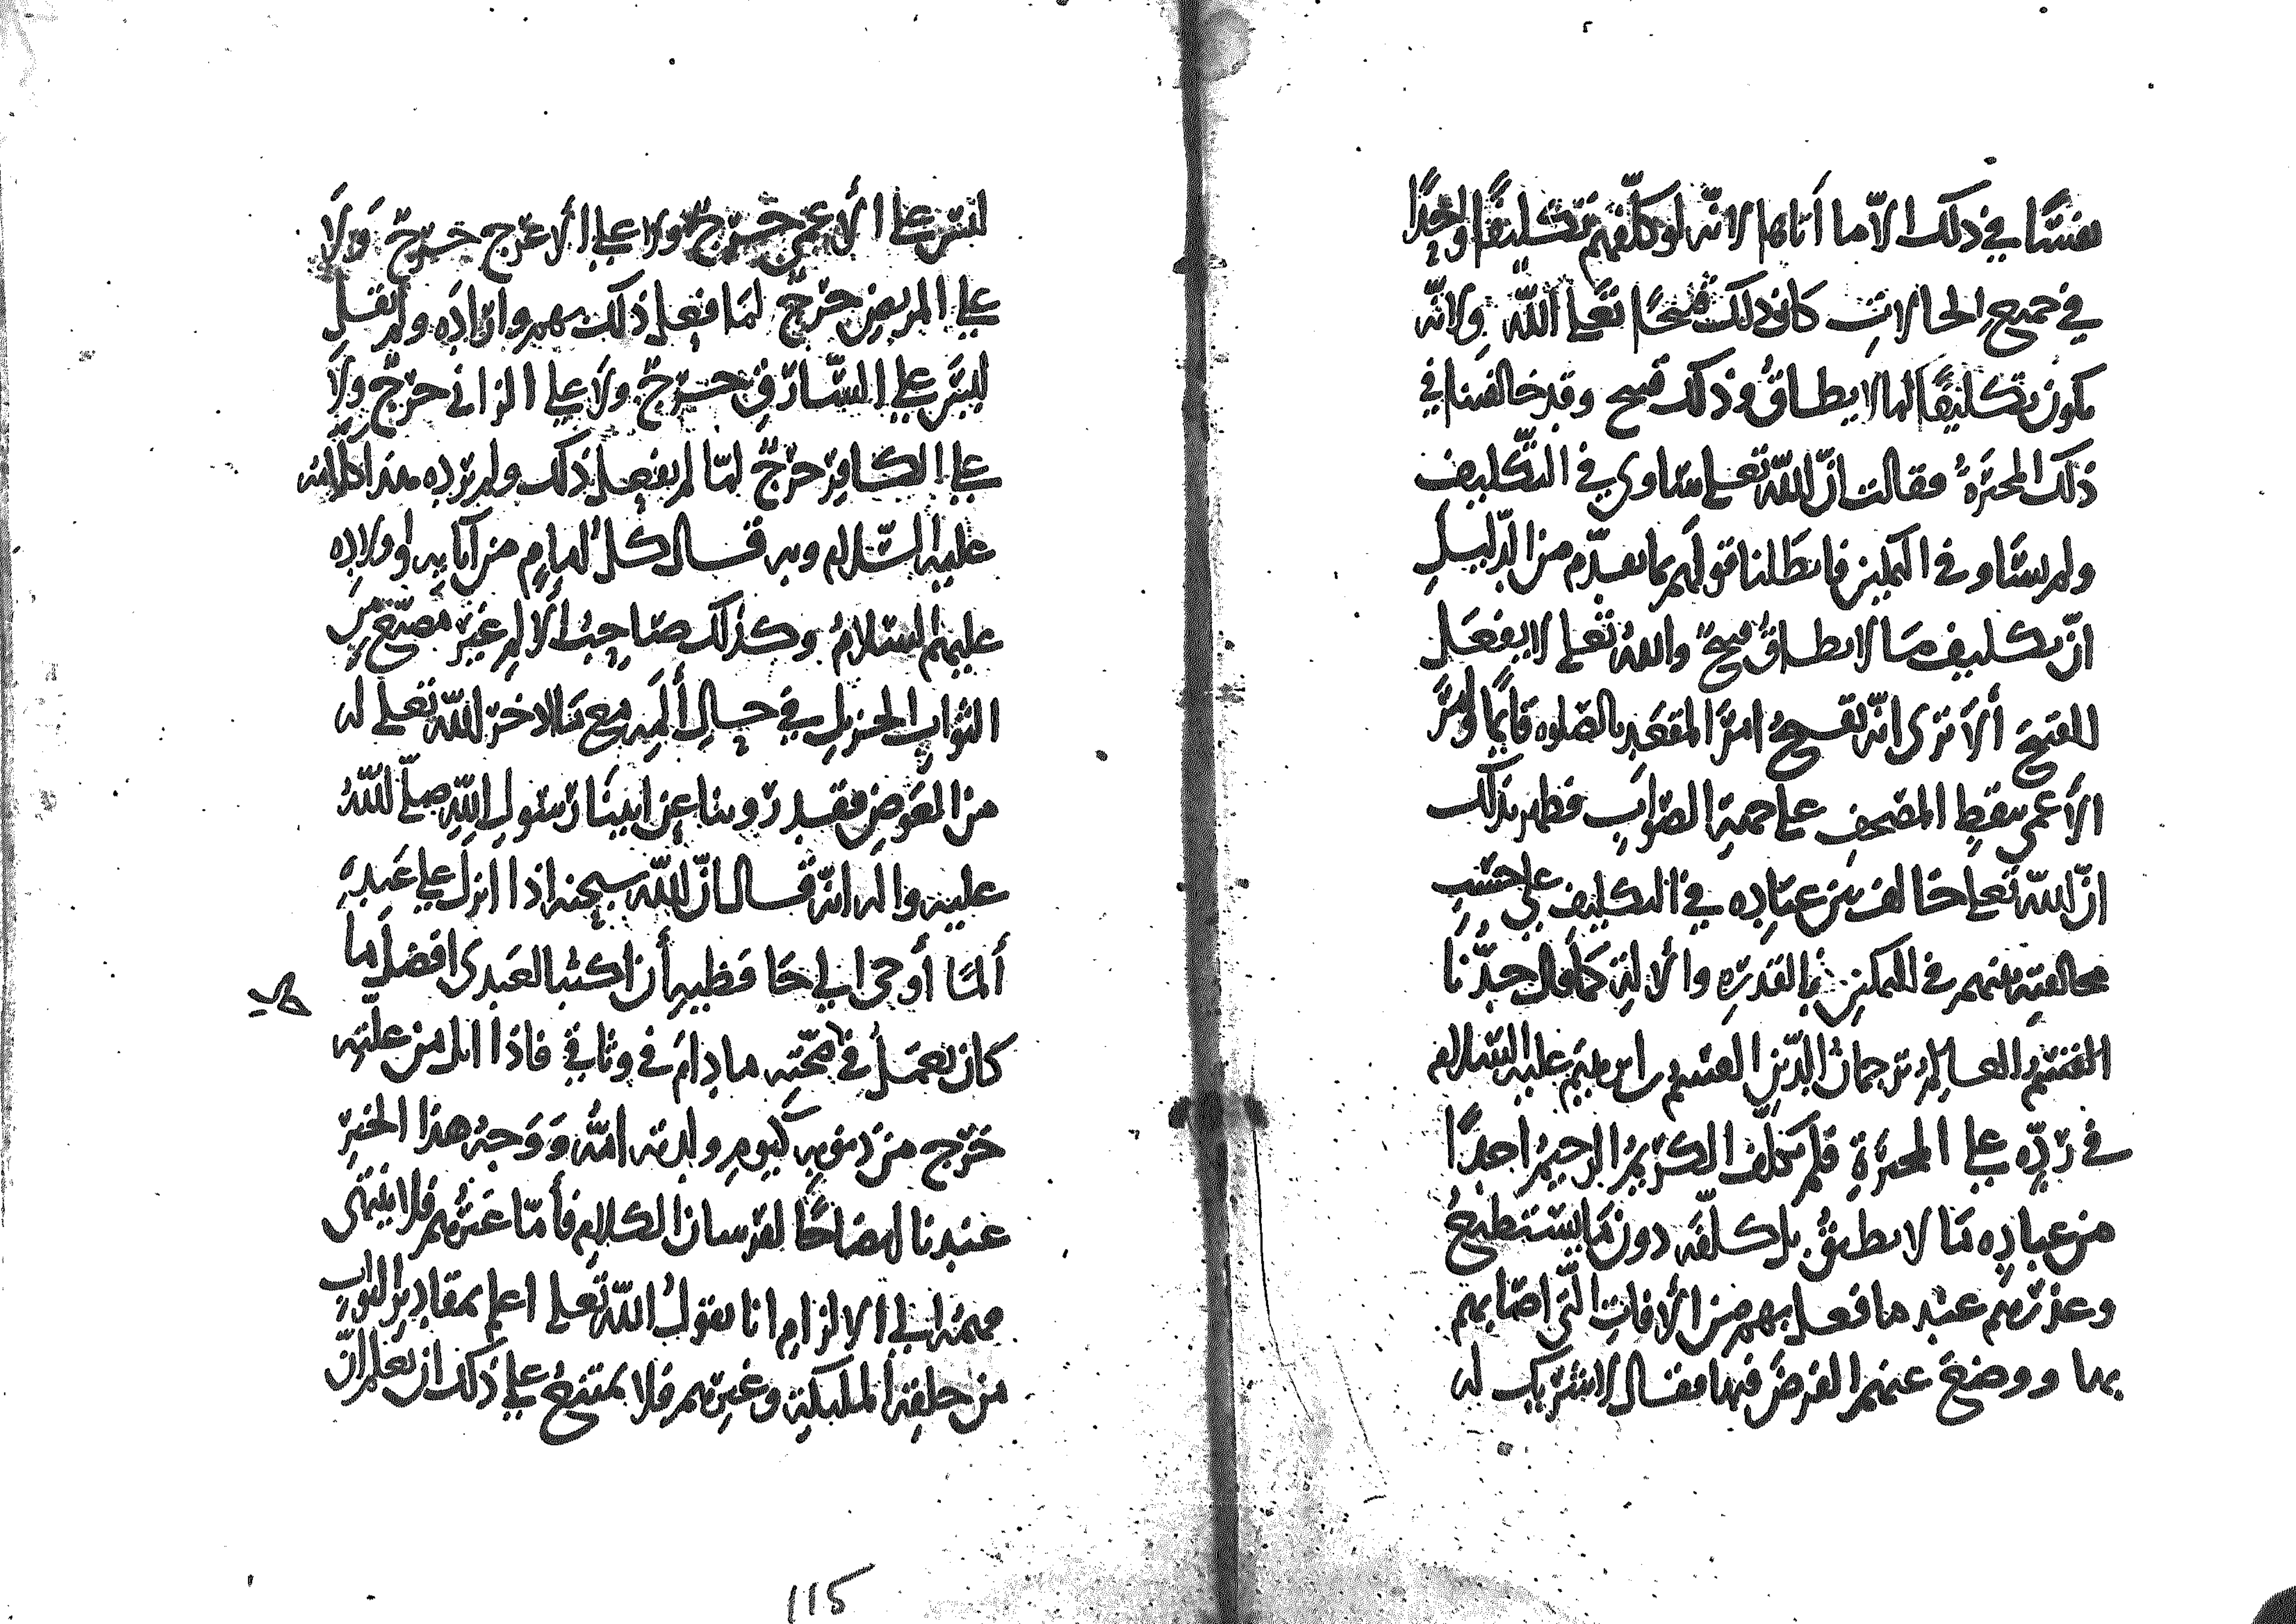 نفسًا في ذلك الاّ ما أتاها لانّه لو كلّفهم تكليفًا واحدًا
في جميع الحالات كان ذلك قبيحًا تعلى الله ولانّه
يكون تكليفًا لما لا يطاقُ وذلك قبيح وقد خالفنا في
ذلك المجبرَةُ فقالت انّ الله تعلى ساوى في التّكليف
ولم يساو في التمكين فابطلنا قولهم بما تقدّم من الدّليل
انّ تكليف مَا لا يطاقُ قبيحٌ والله تعلى لا يفعَل
القبيحَ ألا ترى انّه يقبحُ امرُ المقعَدِ بالصّلوه قايمًا وأمرُ
الأعمى بنقط المصحف على جهةِ الصّواب فظهر بذلك
انّ الله تعلى خالف بين عبَادِه في التكليفِ على حسَبِ
مخالفتِه بينهم في التمكين بالقدرَةِ والألةِ كما قال جدُّنا
القسم العالِمُ ترجمانُ الدّين القسم بن ابرهيم عليه السّلام
في ردِّه على المجبرَةِ فلم يكلّف الكريمُ الرحيمُ احدًا
من عبادِه مَا لا يطيقُ بل كلّفَه دون مَا يستطيعُ
وعذرَهم عند ما فعل بهم من الأفاتِ الّتي اصَابهم
بها ووضعَ عنهم الفرضَ فيها فقال لا شريك له
ليسَ على الأعمى حرَجٌ ولا على الأعرَج حَرَجٌ وَلَا
على المريضِ حَرَجٌ لمَا فعل ذلك بهم وارَادَه ولم يقل
ليسَ على السّارقِ حرَجٌ ولَا على الزانى حرَجٌ ولَا
على الكافِر حرَجٌ لمّا لم يفعل ذلك ولم يُرده هذا كلامُه
عليه السّلام وبه قال كلُ امامٍ من آبايه واولادِه
عليهم السّلامُ وكذلك صَاحبُ الألم غيرُ مُمتنعٍ من
الثّوابِ الجزيلِ في حالِ ألمِهِ مع مَا ادّخر الله تعلى له
من العوَضِ فقد روينا عن ابينا رَسُولِ اللهِ صلّى اللهُ
عليه واله انّه قال انّ الله سبحنه اذا انزل على عَبدِهِ
ألمًا أوحى الى حافظيهِ أن اكتبا لعَبدي افضلَ ما
كان يعمَلُ في صحّتِه ما دامَ في وثاقي فاذا ابلّ من علّتِه
خرَج من ذنوبِه كيومِ ولدته امُّه وَوَجهُ هذا الخبَرِ
عندنا ايضاحًا لفرسان الكلامِ فأمّا غيرُهم فلا ينتهى
معه الى الالزام انا نقولُ الله تعلى اعلم بمقاديرِ الثوابِ
من خلقِه الملايكةِ وغيرِهم فلا يمتنعُ على ذلك ان يَعلمَ انّ
115